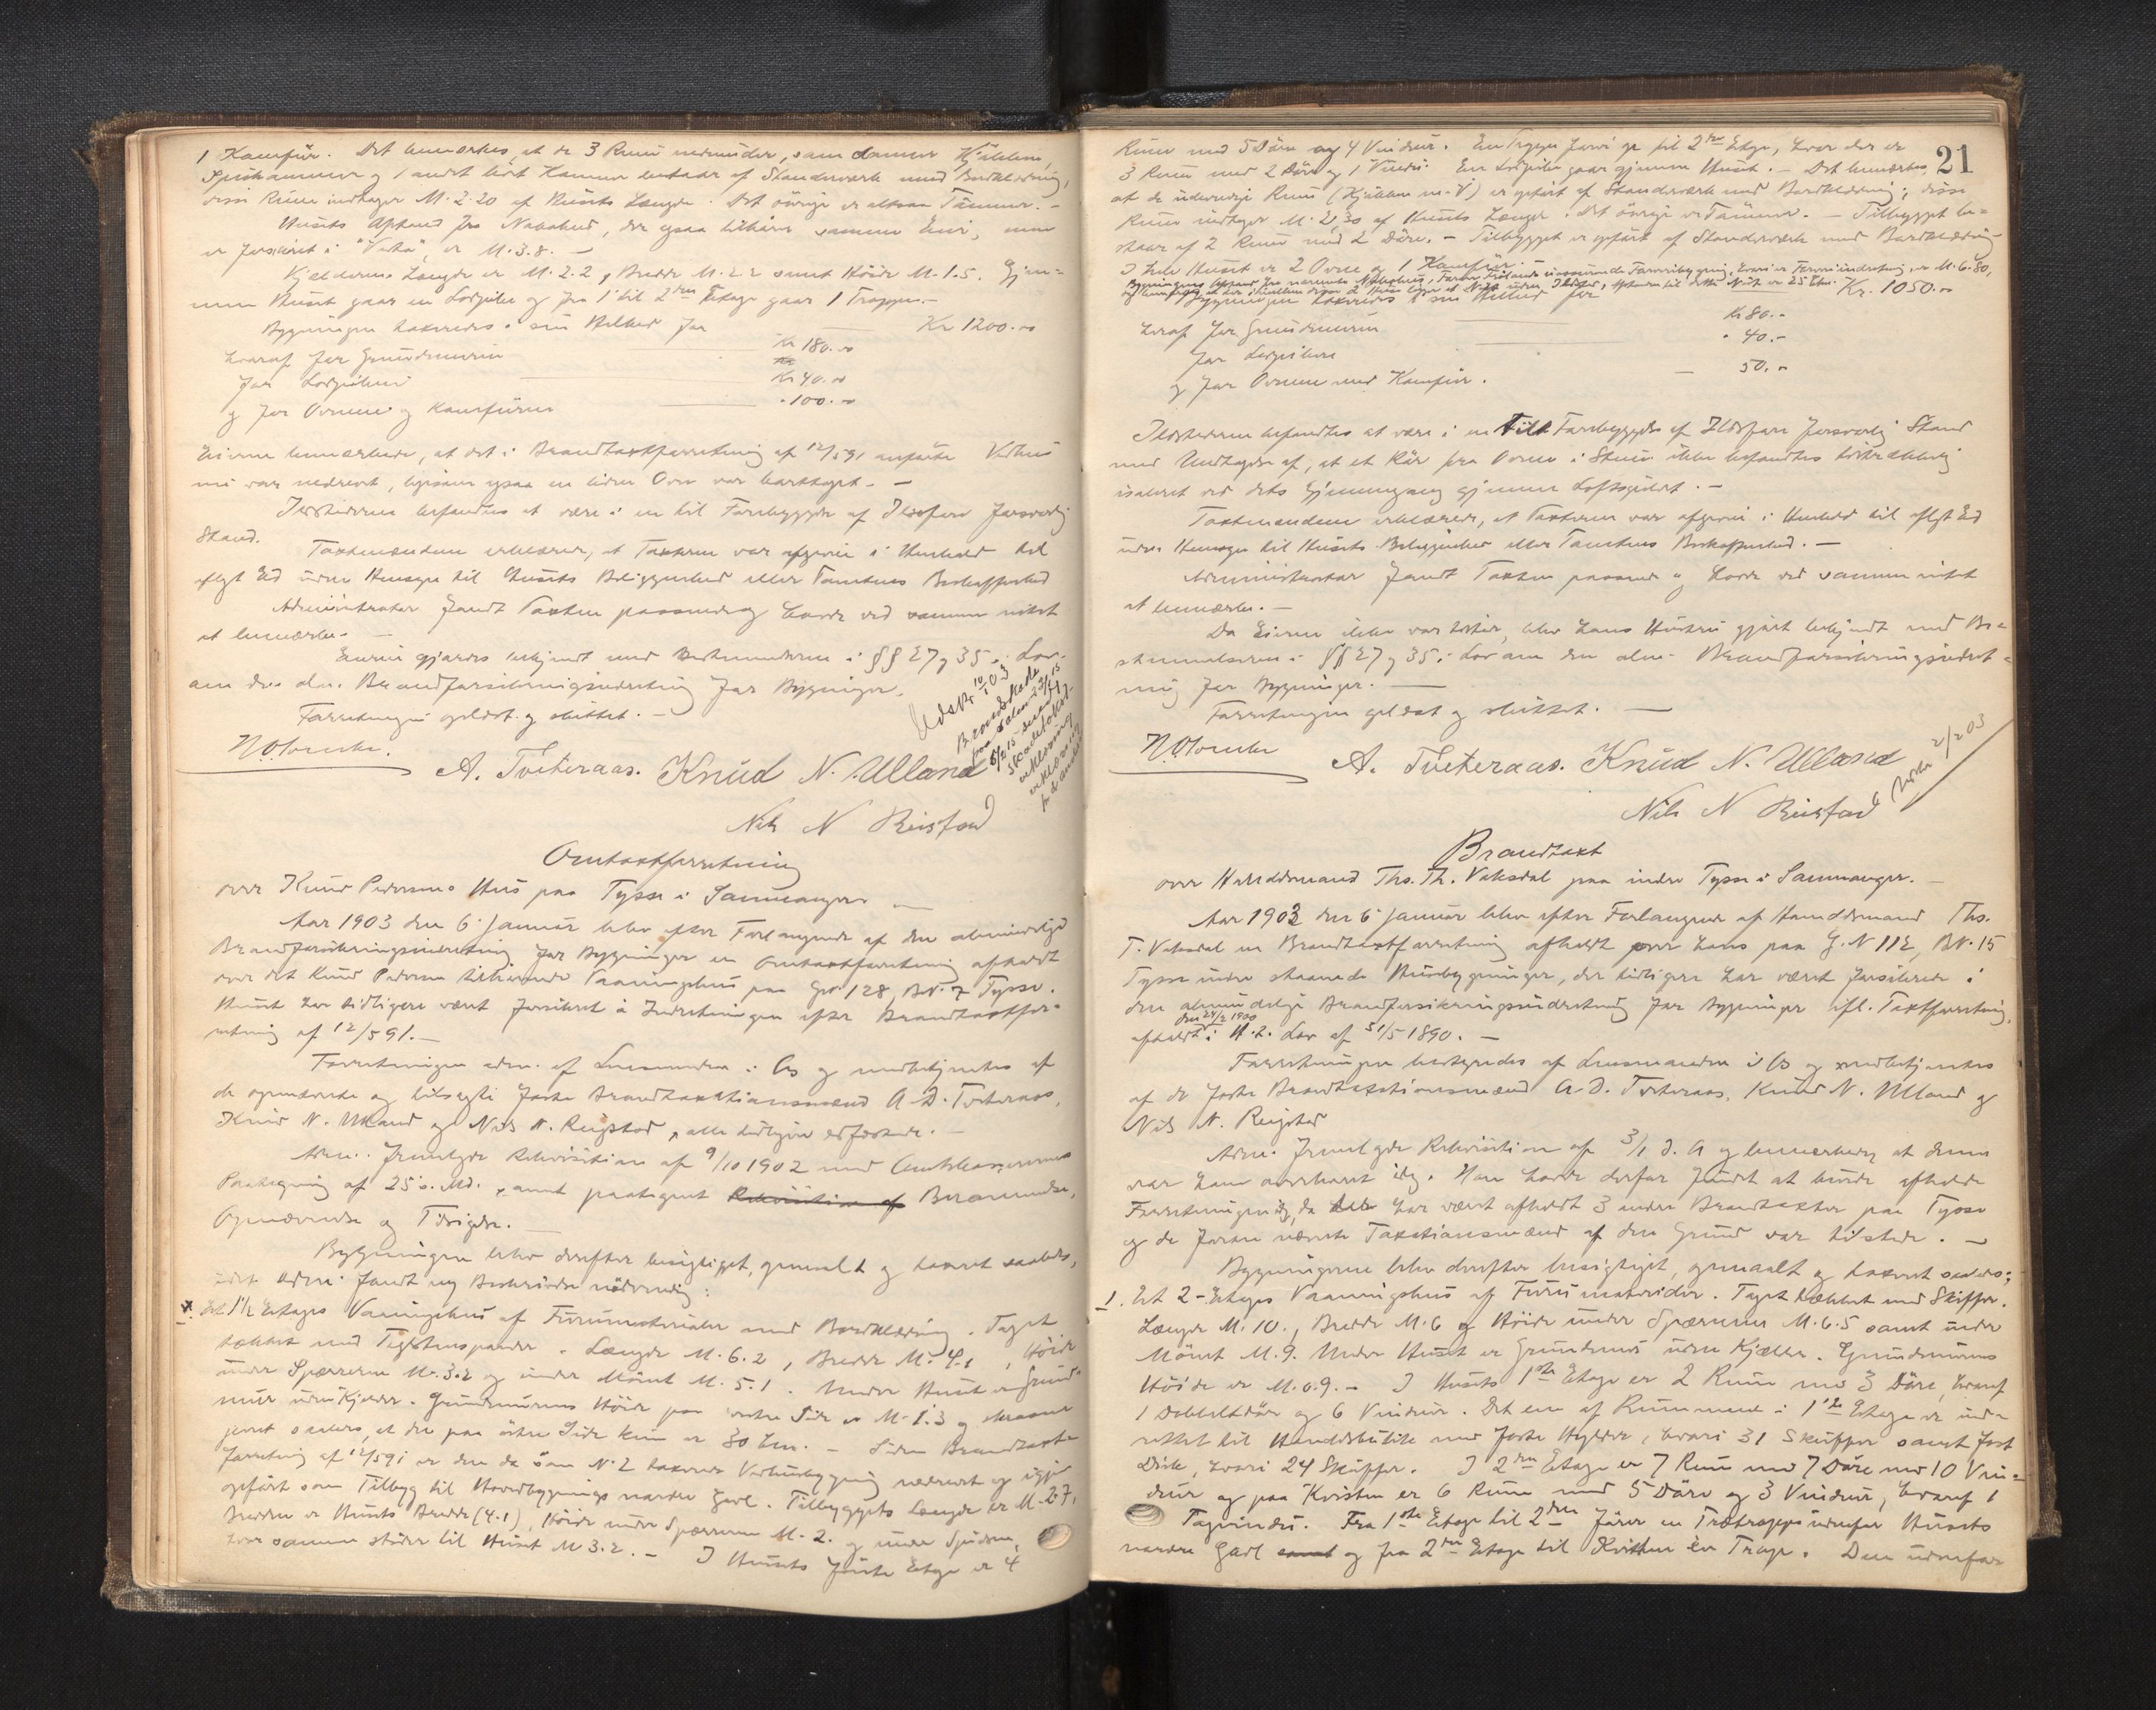 1 Komfür. Det bemærkes, at de 3 Rum nedenunder, som danner Kjökken,
Spisekammer og 1 andet lidet Kammer bestaar af Standerværk med Bordklædning,
disse Rum indtager M. 2.20 af Husets Længde. Det övrige er altsaa Tömmer. -
Husets Afstand fra Nabohus, der ogsaa tilhörer samme Eier, men
er forsikret i "Vesta", er M. 3.8. -
Kjælderens Længde er M. 2.2, Bredde M. 2.2 samt Höide M. 1.5. Gjen-
nem Huset gaar en Lodpibe og fra 1 til 2den Etage gaar 1 Trappe. -
Bygningen taxeredes i sin Helhed for Kr 1200.00
hvoraf for Grundmuren Kr 180.00
for Lodpiben Kr 40.00
og for Ovnene og Komfüren " 100.00
Eieren bemærkede, at det i Brandtaxtforretning af 12/5 91 anförte Vedhus
nu var nedrevet, ligesom ogsaa en liden Ovn var borttaget. -
Ildstederne befandtes at være i en til Forebyggelse af Ildsfare forsvarlig
Stand. Taxtmændene erklærede, at Taxterne var afgivne i Henhold til
aflagt Ed uden Hensyn til Husets Beliggenhed eller Tomtens Beskaffenhed
Administrator fandt Taxten passende og havde ved samme intet
at bemærke. -
Eieren gjordes bekjendt med Bestemmelserne i §§ 27 og 35 i Lov
om den alm. Brandforsikringsindretning for Bygninger.
Forretningen oplæst og sluttet. -
Udskr 10/1 03
Brandskade
A. Tveteraas. Knud N. Ulland
Nils N Reistad
Omtaxtforretning
over Knud Pedersens Hus paa Tysse i Samnanger
Aar 1903 den 6 Januar blev efter Forlangende af den almindelige
Brandforsikringsindretning for Bygninger en Omtaxtforretning afholdt
over det Knud Pedersen tilhörende Vaaningshus paa Gn. 128, BN. 7 Tysse.
Huset har tidligere været forsikret i Indretningen efter Brandtaxtfor-
retning af 12/5 91. -
Forretningen adm. af Lensmanden i Os og medbetjentes af
de opnævnte og tilsagte faste Brandtaxtationsmænd A. D. Tveteraas,
Knud N. Ulland og Nils N. Reigstad, alle tidligere edfæstede. -
Adm. fremlagde Rekvisition af 9/10 1902 med Amtskasserens
Paategning af 25 s. Md. samt paategnet Rekvisition af Berammelse,
Opnævnelse og Tilsigelse.
Bygningen blev derefter besigtiget, opmaalt og taxeret saaledes,
idet Adm. fandt ny Beskrivelse nödvendig:
1. Et 1½ Etages Vaaningshus af Furumaterialer med Bordklædning. Taget
tækket med Teglstenspander. Længde M. 6.2, Bredde M. 4.1, Höide
under Spærrerne M. 3.2 og under Mönet M. 5.1. Under Huset er Grund-
mur uden Kjælder. Grundmurens Höide paa vestre Side er M. 1.3 og skraaner
jevnt saaledes, at den paa östre Side kun er 30 Ctm. - Siden Brandtaxt-
forretning af 12/5 91 er den da som N. 2 taxerede Vedhusbygning nedrevet og igjen
opfört som Tilbyg til Hovedbygnings nordre Gavl. Tilbyggets Længde er M. 2.7,
Bredden er Husets Bredde (4.1), Höide under Spærrerne M. 2. og under Spidsen,
hvor samme stöder til Huset M 3.2. - I Husets förste Etage er 4
21
Rum med 5 Döre og 4 Vinduer. En Trappe förer op til 2den Etage, hvor der er
3 Rum med 2 Döre og 1 Vindu. En Lodpibe gaar gjennem Huset. - Det bemærkes,
at de udvendige Rum (Kjökken m. V) er opfört af Standerværk med Bordklædning; disse
Rum indtager M. 2,30 af Husets Længde. Det övrige er Tömmer. - Tilbygget be-
staar af 2 Rum med 2 Döre. - Tilbygget er opfört af Standerværk med Bordklædning
I hele Huset er 2 Ovne og 1 Komfür. -
Bygningen taxeredes i sin Helhed for Kr. 1050.00
hvoraf for Grundmuren Kr 80.-
for Lodpiben " 40.-
og for Ovnene med Komfür. 50.00
Ildstederne befandtes at være i en til Forebyggelse af Ildsfare forsvarlig Stand
med Undtagelse af, at et Rör fra Ovnen i Stuen ikke befandtes tilstrækkelig
isoleret ved dets Gjennemgang gjennem Loftsgulvet. -
Taxtmændene erklærede, at Taxterne var afgivne i Henhold til aflagt Ed
uden Hensyn til Husets Beliggenhed eller Tomtens Beskaffenhed. -
Administrator fandt Taxten passende og havde ved samme intet
at bemærke. -
Da Eieren ikke var tilstede, blev hans Hustru gjort bekjendt med Be-
stemmelserne i §§ 27 og 35 i Lov om den alm. Brandforsikringsindret-
ning for Bygninger. -
Forretningen oplæst og sluttet. -
A. Tveteraas. Knud N. Ulland
Nils N Reistad
2/2 03
Brandtaxt
over Handelsmand Ths. Th. Vaksdal paa indre Tysse i Samnanger. -
Aar 1903 den 6 Januar blev efter Forlangende af Handelsmand Ths.
T. Vaksdal en Brandtaxtforretning afholdt over hans paa G. N 112, BN. 15
Tysse indre staaende Husbygninger, der tidligere har været forsikrede i
den almindelige Brandforsikringsindretning for Bygninger ifl. Taxtforretning,
den 24/2 1900
afholdt i H. t. Lov af 31/5 1890. -
Forretningen bestyredes af Lensmanden i Os og medbetjentes
af de faste Brandtaxtationsmænd A. D. Tveteraas, Knud N. Ulland og
Nils N. Reigstad
Adm. fremlagde Rekvisition af 3/1 d. A og bemærkede, at denne
var ham overbragt idag. Han havde derfor fundet at burde afholde
Forretningen idag, da der har været afholdt 3 andre Brandtaxter paa Tysse
og de forhen nævnte Taxationsmænd af den Grund var tilstede. -
Bygningerne blev derefter besigtiget, opmaalt og taxeret saaledes:
1. Et 2-Etages Vaaningshus af Furumaterialer. Taget tækket med Skiffer.
Længde M. 10., Bredde M. 6 og Höide under Spærrerne M. 6.5 samt under
Mönet M. 9. Under Huset er Grundmur uden Kjælder. Grundmurens
Höide er M. 0.9. - I Husets 1ste Etage er 2 Rum med 3 Döre, hvoraf
1 Dobbeltdör og 6 Vinduer. Det ene af Rummene i 1ste Etage er ind-
rettet til Handelsbutik med faste Hylder, hvori 31 Skuffer samt fast
Disk, hvori 24 Skuffer. I 2den Etage er 7 Rum med 7 Döre med 10 Vin-
duer og paa Kvisten er 6 Rum med 5 Döre og 3 Vinduer, hvoraf 1
Tagvindu. Fra 1ste Etage til 2den förer en Trætrappe udenfor Husets
nordre Gavl samt og fra 2den Etage til Kvisten én Trappe. Den udenfor